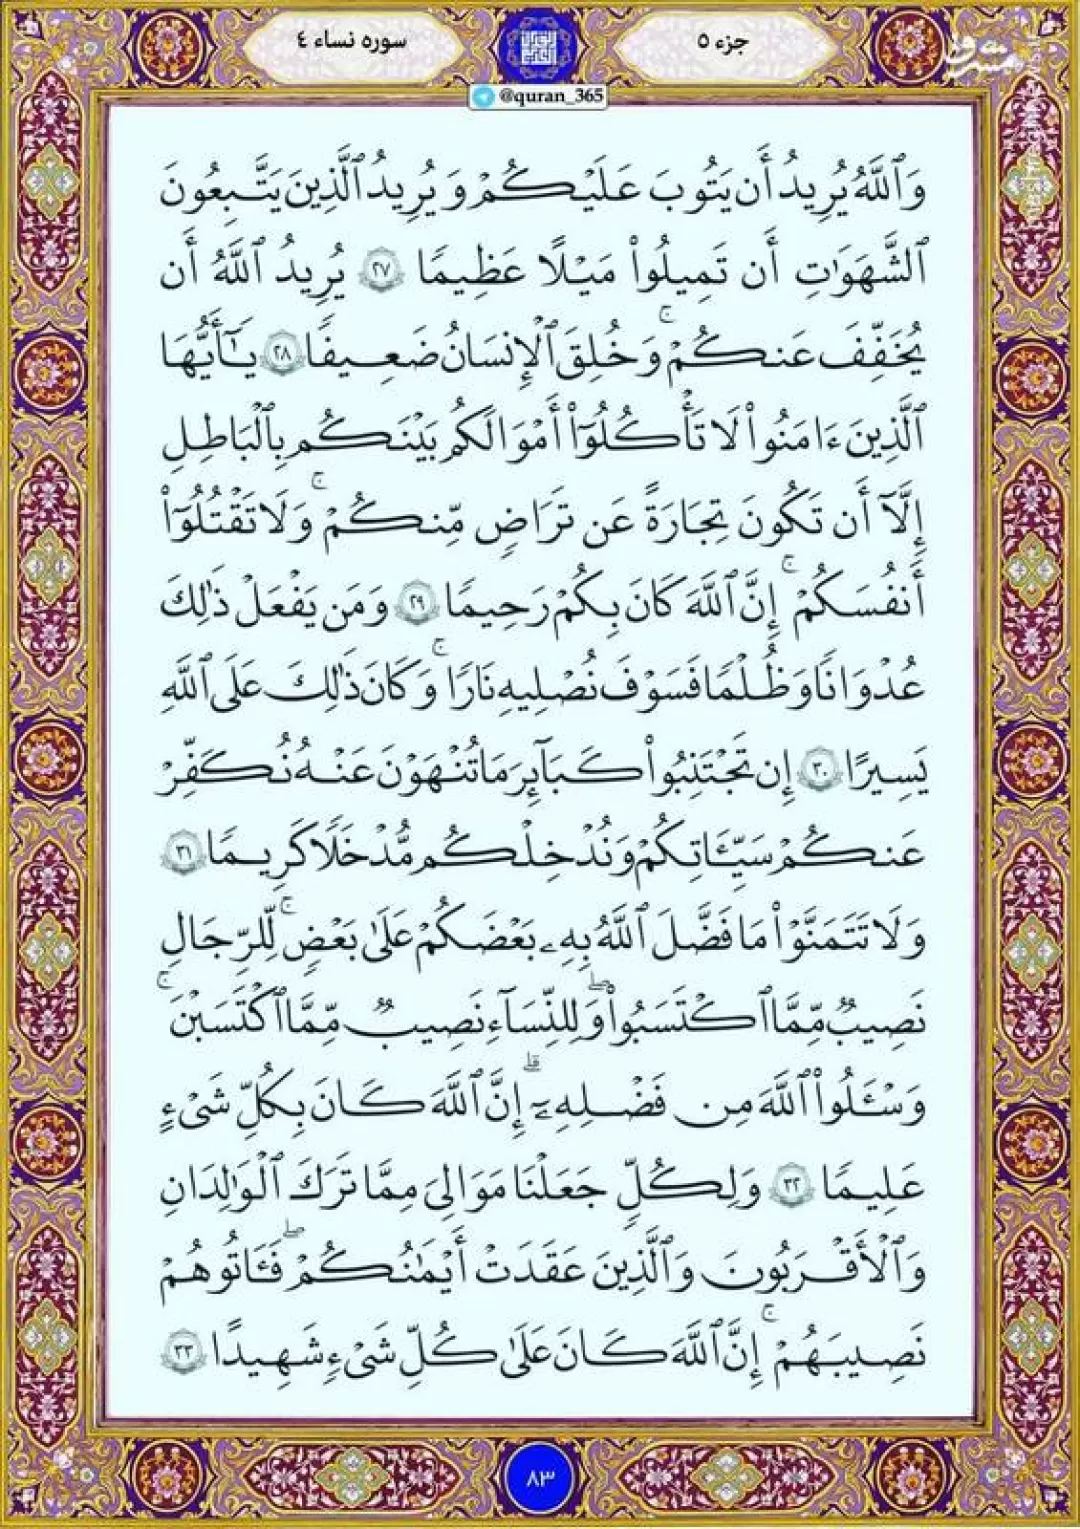 جزء ۵
سوره نساء ٤
@quran_365
مشرق
وَٱللَّهُ يُرِيدُ أَن يَتُوبَ عَلَيْكُمْ وَيُرِيدُ ٱلَّذِينَ يَتَّبِعُونَ
ٱلشَّهَوَٰتِ أَن تَمِيلُوا۟ مَيْلًا عَظِيمًا ۲۷ يُرِيدُ ٱللَّهُ أَن
يُخَفِّفَ عَنكُمْ ۚ وَخُلِقَ ٱلْإِنسَانُ ضَعِيفًا ۲۸ يَـٰٓأَيُّهَا
ٱلَّذِينَ ءَامَنُوا۟ لَا تَأْكُلُوٓا۟ أَمْوَالَكُم بَيْنَكُم بِٱلْبَاطِلِ
إِلَّآ أَن تَكُونَ تِجَارَةً عَن تَرَاضٍ مِّنكُمْ ۚ وَلَا تَقْتُلُوٓا۟
أَنفُسَكُمْ ۚ إِنَّ ٱللَّهَ كَانَ بِكُمْ رَحِيمًا ۲۹ وَمَن يَفْعَلْ ذَٰلِكَ
عُدْوَانًا وَظُلْمًا فَسَوْفَ نُصْلِيهِ نَارًا ۚ وَكَانَ ذَٰلِكَ عَلَى ٱللَّهِ
يَسِيرًا ۳۰ إِن تَجْتَنِبُوا۟ كَبَآئِرَ مَا تُنْهَوْنَ عَنْهُ نُكَفِّرْ
عَنكُمْ سَيِّـَٔاتِكُمْ وَنُدْخِلْكُم مُّدْخَلًا كَرِيمًا ۳۱
وَلَا تَتَمَنَّوْا۟ مَا فَضَّلَ ٱللَّهُ بِهِۦ بَعْضَكُمْ عَلَىٰ بَعْضٍ ۚ لِّلرِّجَالِ
نَصِيبٌ مِّمَّا ٱكْتَسَبُوا۟ ۖ وَلِلنِّسَآءِ نَصِيبٌ مِّمَّا ٱكْتَسَبْنَ ۚ
وَسْـَٔلُوا۟ ٱللَّهَ مِن فَضْلِهِۦٓ ۗ إِنَّ ٱللَّهَ كَانَ بِكُلِّ شَىْءٍ
عَلِيمًا ۳۲ وَلِكُلٍّ جَعَلْنَا مَوَالِىَ مِمَّا تَرَكَ ٱلْوَٰلِدَانِ
وَٱلْأَقْرَبُونَ ۚ وَٱلَّذِينَ عَقَدَتْ أَيْمَـٰنُكُمْ ۖ فَـَٔاتُوهُمْ
نَصِيبَهُمْ ۚ إِنَّ ٱللَّهَ كَانَ عَلَىٰ كُلِّ شَىْءٍ شَهِيدًا ۳۳
۸۳